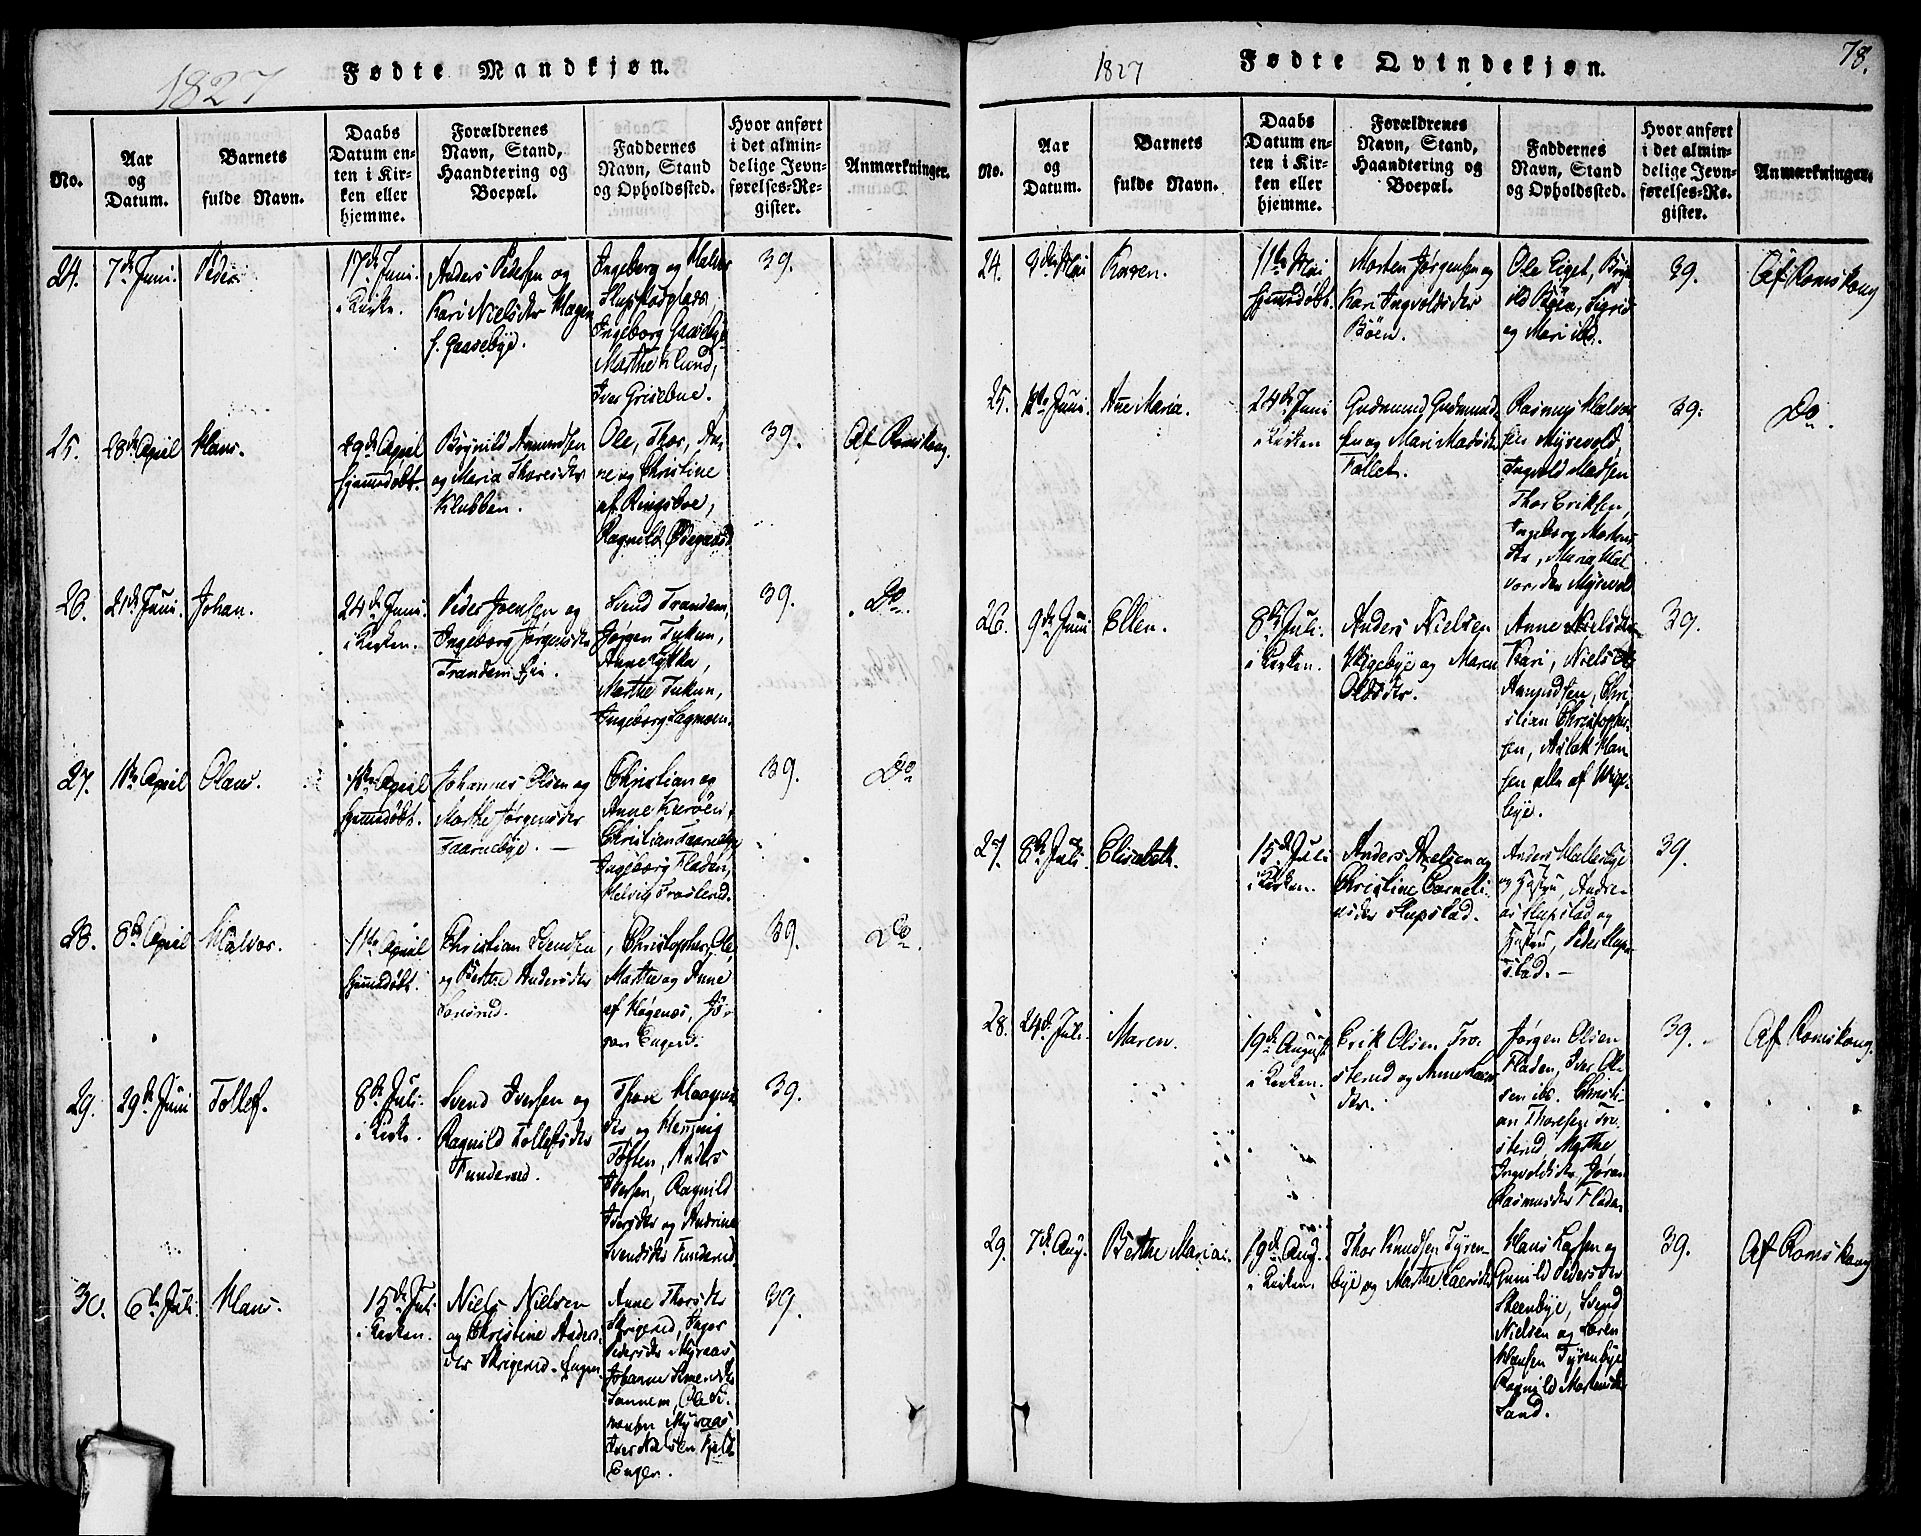 1827
Fødte Mandkjøn.
No.
Aar
og
Datum.
Barnets
fulde Navn.
Daabs
Datum en-
ten i Kir-
ken eller
hjemme.
Forældrenes
Navn, Stand,
Haandtering og
Boepæl.
Faddernes
Navn, Stand
og Opholdssted.
Hvor anført
i det almin-
delige Jevn-
førelses-Re-
gister.
Anmærkninger.
24.
7de Juni.
Peder
17de Juni.
i Kirke.
Anders Pedersen og
Kari Nielsdtr
f. Gaasebye.
Ingeborg og Halvor
Ingeborg Gaasebye
Marthe Lund,
Iver
39.
25.
28de April
Hans.
29de April
hjemmedøbt.
Brynild Amundsen
og Maria Thoresdtr
Klubben.
Ole, Thor, An-
ne og Christine
af Ringsboe,
Ragnild Ødegaard
39.
Af Romskoug.
26.
21de Juni.
Johan.
24de Juni.
i Kirken.
Peder Joensen og
Ingeborg Jørgensdtr
Trandem Eje.
Svend Trandem,
Jørgen Tukun,
Anne Lykka,
Marthe Tukun,
Ingeborg
39.
Do.
27.
April
Olaus.
April
hjemmedøbt.
Johannes Olsen og
Marthe Jørgensdtr
Taarnebye.
Christian og
Anne Kierøen,
Christian Taarnebye
Ingeborg Fladen,
Helvig Trosterud.
39.
Do
28.
8de April
Halvor.
April
hjemmedøbt.
Christian Svendsen
og Berthe Andersdtr
Christopher, Ole,
Marthe og Anne
af Høgenæs, Jø-
ran Engen.
39.
Do.
29.
29de Juni
Tollef.
8de Juli.
i Kirke.
Svend Iversen og
Ragnild Tollefsdtr
Funderud.
Thore
og Henning
Toften, Anders
Iversen, Ragnild
Iversdtr og Andrine
Svendsdtr Funderud
39.
30.
6te Juli
Hans.
15de Juli
i Kirken.
Niels Nielsen
og Christine Anders-
dtr Skrigerud-Engen
Anne Thorsdtr
Skrigerud, Inger
Pedersdtr Myraas
Johanne
Sannem, Ole
Myraas
Iver Nielsen
Engen.
39.
1827
Fødte Qvindekjøn.
78.
No.
Aar
og
Datum.
Barnets
fulde Navn.
Daabs
Datum en-
ten i Kir-
ken eller
hjemme.
Forældrenes
Navn, Stand,
Haandtering og
Boepæl.
Faddernes
Navn, Stand
og Opholdssted.
Hvor anført
i det almin-
delige Jevn-
førelses-Re-
gister.
Anmærkninger.
24.
Mai
Karen.
11te Mai
hjemmedøbt.
Morten Jørgensen og
Kari Ingvoldsdtr
Böen.
Ole Eiget, Bryn-
ild Böen, Sigrid
og Mari ibd.
39.
Af Romskoug
25.
Juni
Ane Maria.
24de Juni
i Kirken
Gudmund Gudmund-
sen og Mari Madsdtr
Tollet.
Rasmus Halvor-
sen Myrevold,
Ingvold Madsen
Thor Eriksen,
Ingeborg Mortens-
dtr, Maria Hal-
vorsden Myrevold
39.
Do.
26.
9de Juni
Ellen.
8de Juli.
i Kirken.
Anders Nielsen
Vigebye og Maren
Olsdtr.
Anne Nielsdtr
Kari, Niels
Amundsen, Chri-
stian Christopher-
sen, Aslak Han-
sen alle af Wige-
bye.
39.
27.
8de Juli
Elisabeth.
15de Juli
i Kirken.
Anders Nielsen og
Christine Corneli-
usdtr Slupstad.
Anders Møllerbye
og Hustru, Andre-
as Slupstad og
Hustru, Peder Slup-
stad.
39.
28.
24de Juli.
Maren.
19de August
i Kirken.
Erik Olsen Tro-
sterud og Anne
dtr.
Jørgen Olsen
Fladen, Iver Ol-
sen ibd. Christi-
an Thoresen Tro-
sterud, Marthe
Ingvoldsdtr, Jøran
Rasmusdtr Fladen
39.
Af Romskoug.
29.
7de Aug.
Berthe Maria.
19de Aug.
i Kirken.
Thor Knudsen Tyren-
bye og Marthe Larsdtr
Hans Larsen og
Gunild Pedersdtr
Steenbye, Svend
Nielsen og Søren
Hansen Tyrenbye
Ragnild Mortensdtr
Sand.
39.
Af Romskoug